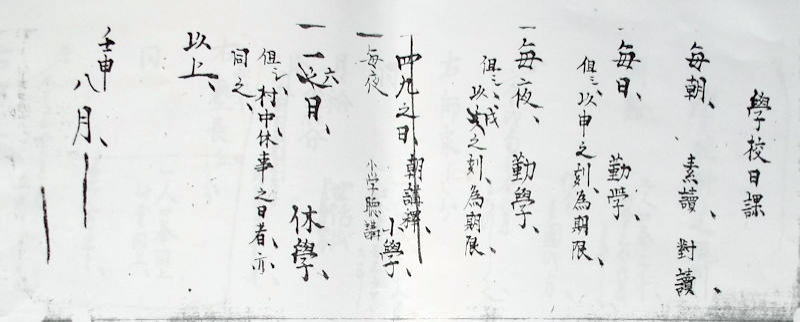 學校日課
一毎朝、素讀、對讀、
一毎日、勤學、
但シ、以申之刻、為期限、
一毎夜、勤學、
但シ、以戌之刻、為期限、
一四九之日、朝講釋、小學、
一毎夜 小学聽講
一一六日、休學、
但シ、村中休事之日者、亦
同之、
以上、
壬申
八月、